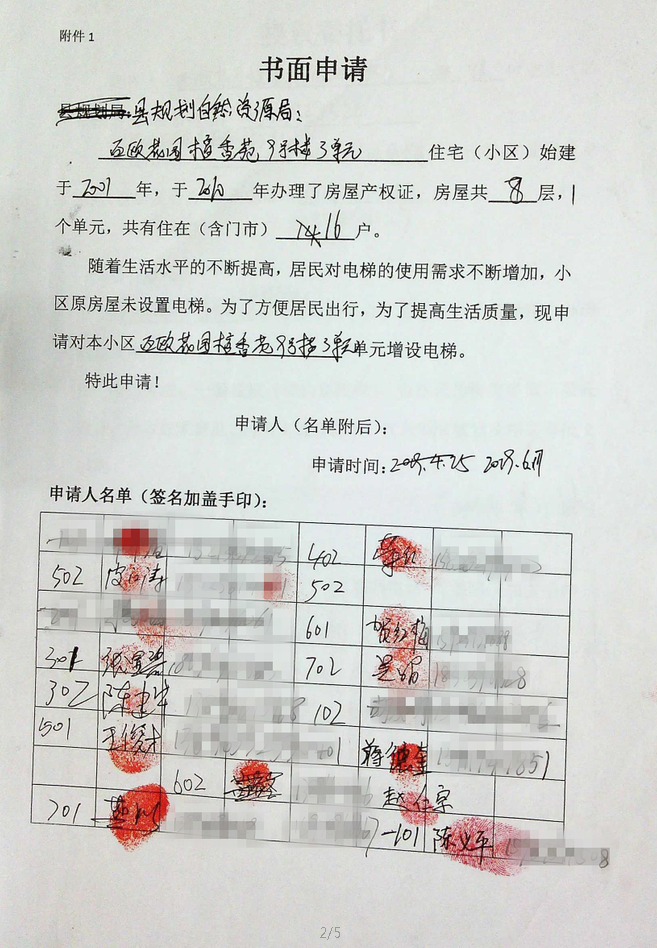 附件 1
书面申请
县规划局:县规划自然资源局:
西欧花园檀香苑9号楼3单元 住宅（小区）始建
于 2001 年，于 2010 年办理了房屋产权证，房屋共 8 层，1
个单元，共有住在（含门市） 16 户。
随着生活水平的不断提高，居民对电梯的使用需求不断增加，小
区原房屋未设置电梯。为了方便居民出行，为了提高生活质量，现申
请对本小区西欧花园檀香苑9号楼3单元单元增设电梯。
特此申请！
申请人（名单附后）：
申请时间：2019.4.25 2019.6月
申请人名单（签名加盖手印）：
402
502 502
601
301 702
302 陈建华 102
501
蒋健奎
602 赵仁京
701 -101 陈义平
2/5